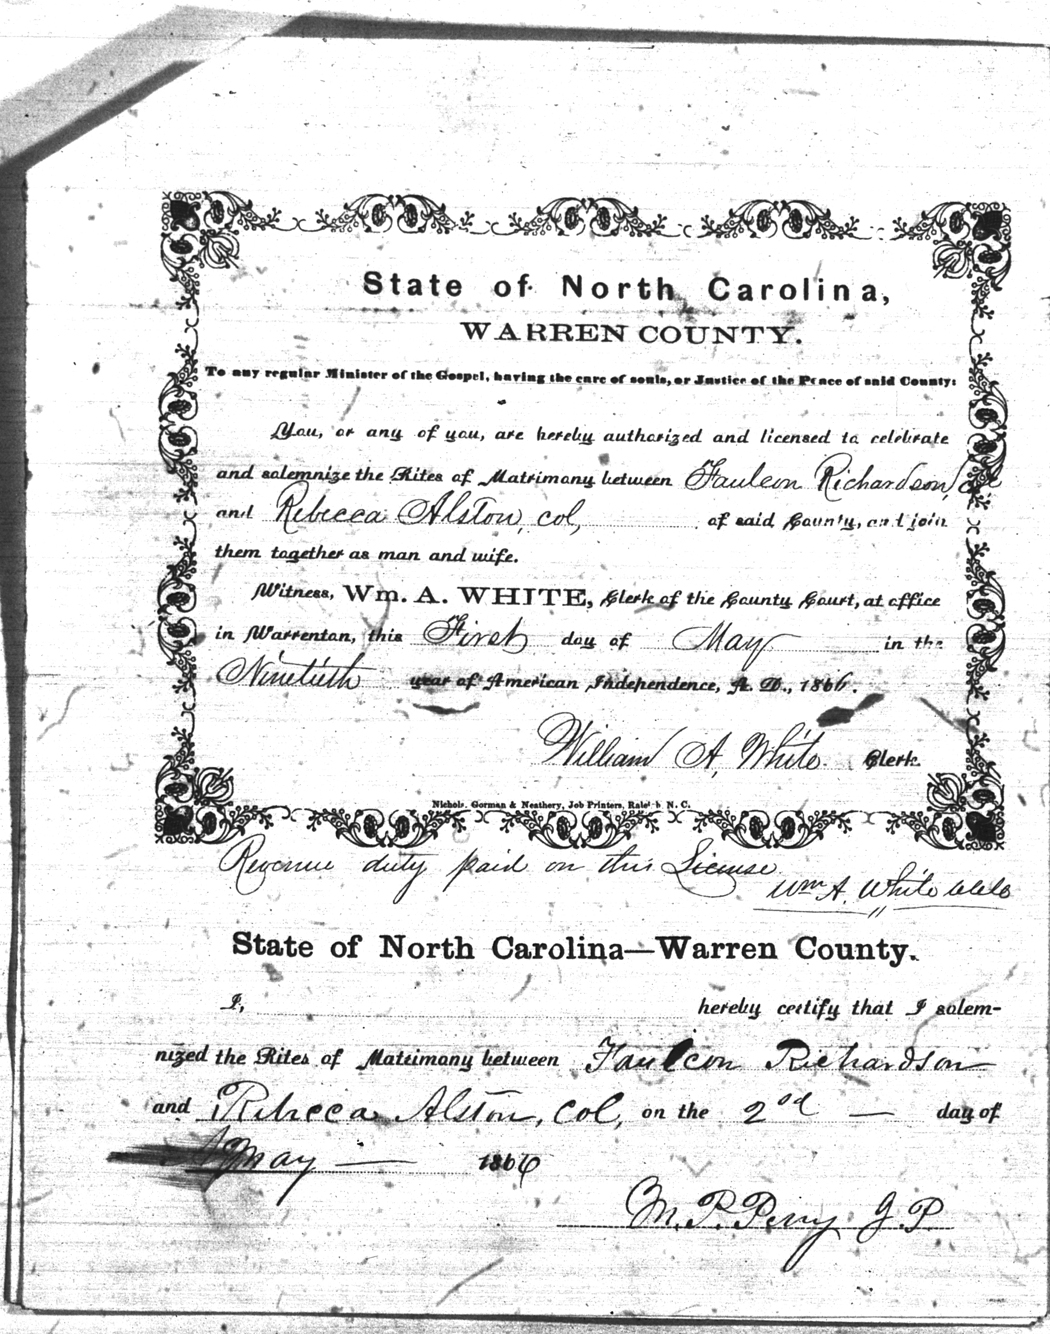 State of North Carolina,
WARREN COUNTY.
To any regular Minister of the Gospel, having the care of souls, or Justice of the Peace of said County:
You, or any of you, are hereby authorized and licensed to celebrate
and solemnize the Rites of Matrimony between Faulcon Richardson,
and Rebecca Alston, col, of said County, and join
them together as man and wife.
Witness, Wm. A. WHITE, Clerk of the County Court, at office
in Warrenton, this First day of May in the
Ninetieth year of American Independence, A. D., 1866.
William A. White Clerk.
Nichols, Gorman & Neathery, Job Printers, Raleigh N. C.
Revenue duty paid on this License
Wm A. White
State of North Carolina—Warren County.
I, hereby certify that I solem-
nized the Rites of Matrimony between Faulcon Richardson
and Rebecca Alston, col, on the 2nd day of
May 1866
M. P. Perry J. P.